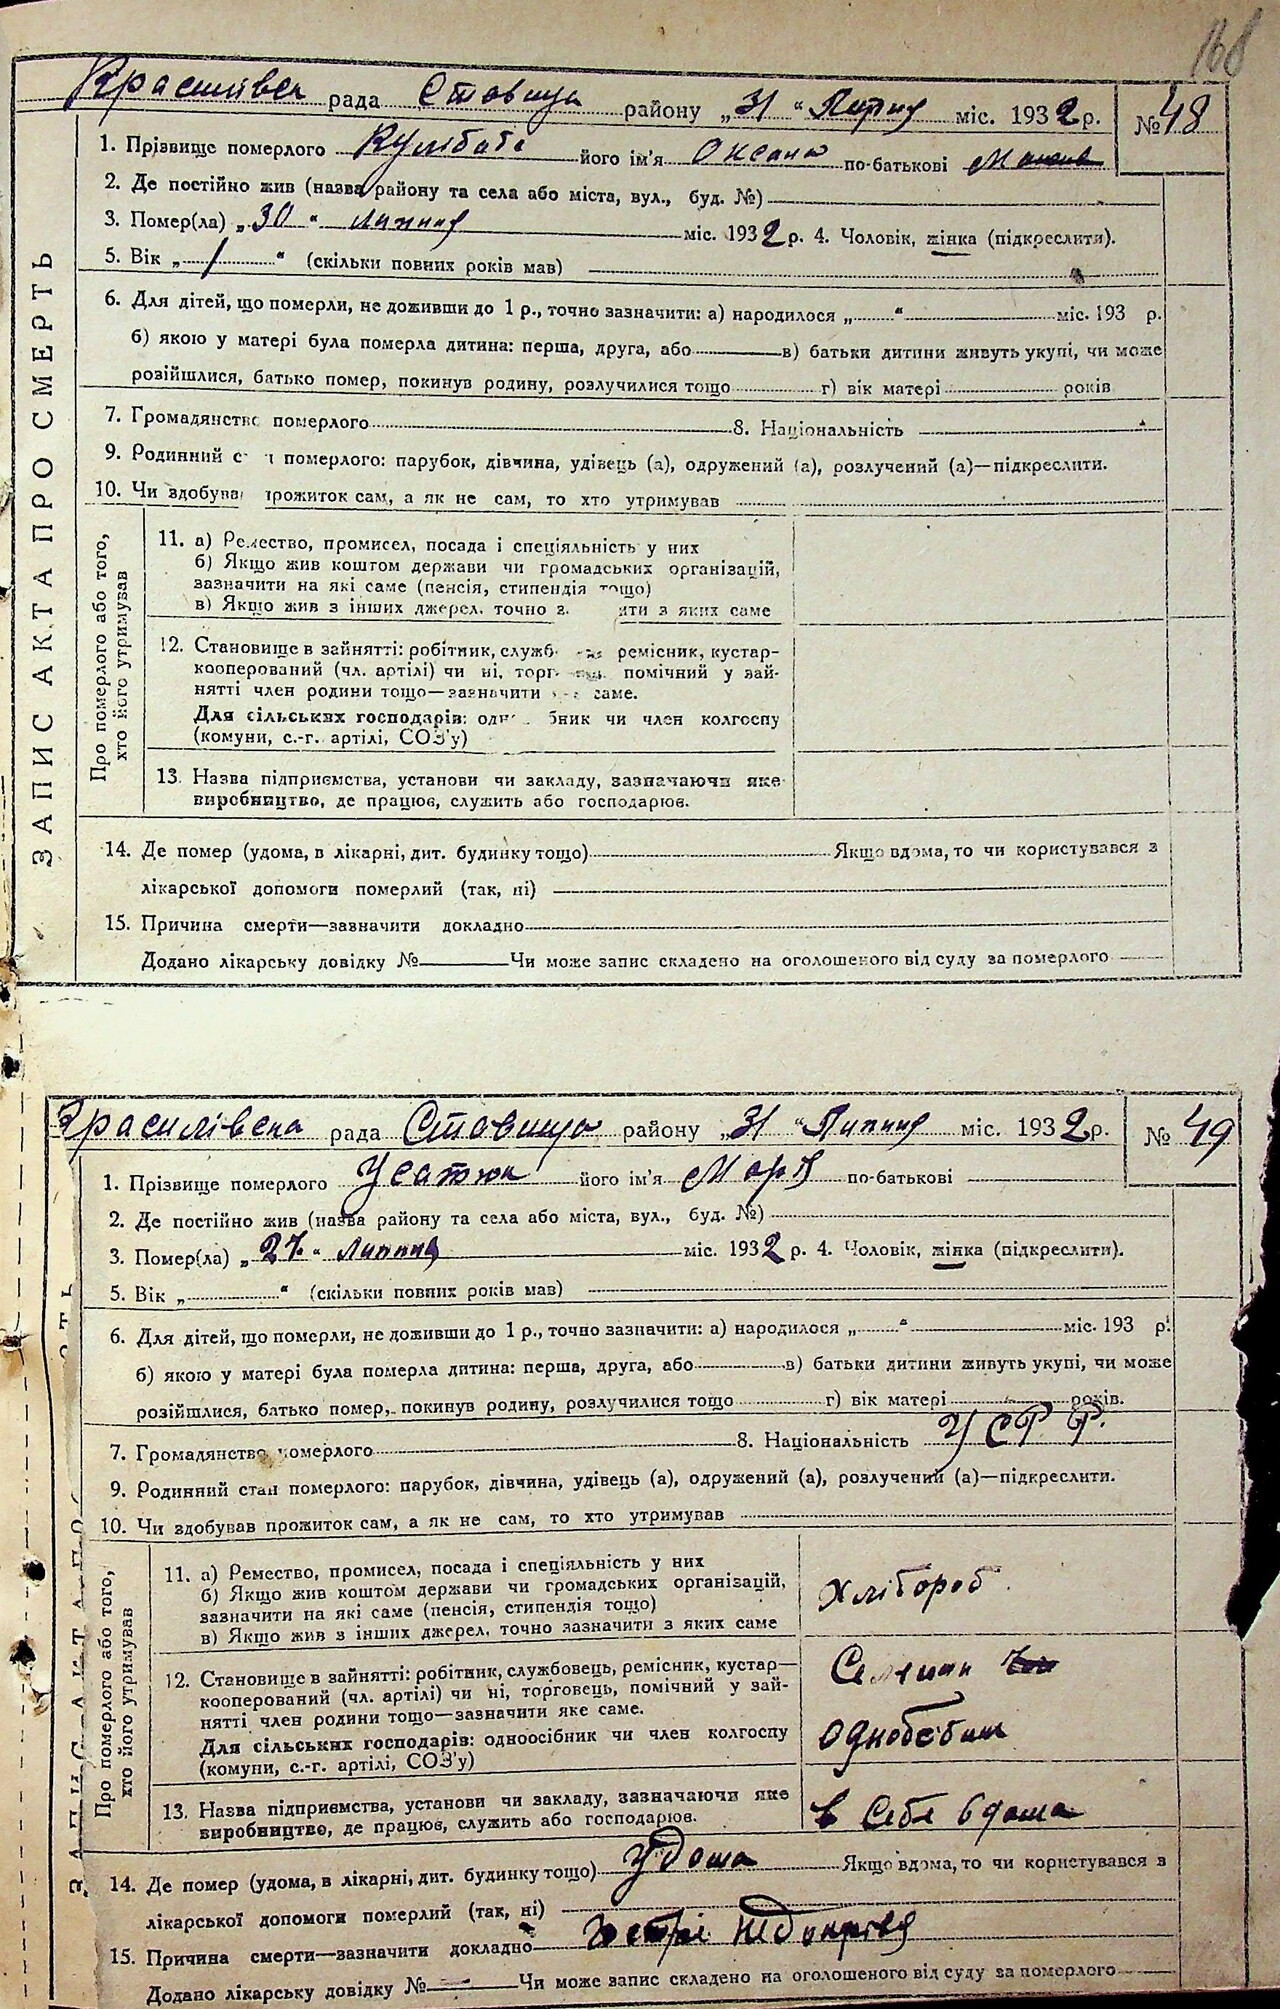 168
рада Ставища району „31“ Липня міс. 1932 р. №48
ЗАПИС АКТА ПРО СМЕРТЬ
1. Прізвище померлого Кулібаба його ім'я Оксана по-батькові
2. Де постійно жив (назва району та села або міста, вул., буд. №)
3. Помер(ла) „30“ липня міс. 1932 р. 4. Чоловік, жінка (підкреслити).
5. Вік „1“ (скільки повних років мав)
6. Для дітей, що померли, не доживши до 1 р., точно зазначити: а) народилося „ “ міс. 193 р.
б) якою у матері була померла дитина: перша, друга, або в) батьки дитини живуть укупі, чи може
розійшлися, батько помер, покинув родину, розлучилися тощо г) вік матері років
7. Громадянство померлого 8. Національність
9. Родинний с н померлого: парубок, дівчина, удівець (а), одружений (а), розлучений (а)—підкреслити.
10. Чи здобува прожиток сам, а як не сам, то хто утримував
Про померлого або того,
хто його утримував
11. а) Ремество, промисел, посада і спеціяльність у них
б) Якщо жив коштом держави чи громадських організацій,
зазначити на які саме (пенсія, стипендія тощо)
в) Якщо жив з інших джерел, точно з ити з яких саме
12. Становище в зайнятті: робітник, служб ремісник, кустар-
кооперований (чл. артілі) чи ні, торг помічний у зай-
нятті член родини тощо—зазначити саме.
Для сільських господарів: одн бник чи член колгоспу
(комуни, с.-г. артілі, СОЗ'у)
13. Назва підприємства, установи чи закладу, зазначаючи яке
виробництво, де працює, служить або господарює.
14. Де помер (удома, в лікарні, дит. будинку тощо) Якщо вдома, то чи користувався з
лікарської допомоги померлий (так, ні)
15. Причина смерти—зазначити докладно
Додано лікарську довідку № Чи може запис складено на оголошеного від суду за померлого
Красилівська рада Ставища району „31“ Липня міс. 1932 р. № 49
1. Прізвище померлого Усатюк його ім'я Марія по-батькові
2. Де постійно жив (назва району та села або міста, вул., буд. №)
3. Помер(ла) „27“ липня міс. 1932 р. 4. Чоловік, жінка (підкреслити).
5. Вік „ “ (скільки повних років мав)
6. Для дітей, що померли, не доживши до 1 р., точно зазначити: а) народилося „ “ міс. 193 р.
б) якою у матері була померла дитина: перша, друга, або в) батьки дитини живуть укупі, чи може
розійшлися, батько помер, покинув родину, розлучилися тощо г) вік матері років.
7. Громадянство померлого 8. Національність УСРР.
9. Родинний стан померлого: парубок, дівчина, удівець (а), одружений (а), розлучений (а)—підкреслити.
10. Чи здобував прожиток сам, а як не сам, то хто утримував
Про померлого або того,
хто його утримував
11. а) Ремество, промисел, посада і спеціяльність у них
б) Якщо жив коштом держави чи громадських організацій,
зазначити на які саме (пенсія, стипендія тощо)
в) Якщо жив з інших джерел, точно зазначити з яких саме
хлібороб
12. Становище в зайнятті: робітник, службовець, ремісник, кустар—
кооперований (чл. артілі) чи ні, торговець, помічний у зай-
нятті член родини тощо—зазначити яке саме.
Для сільських господарів: одноосібник чи член колгоспу
(комуни, с.-г. артілі, СОЗ'у)
Селянин
13. Назва підприємства, установи чи закладу, зазначаючи яке
виробництво, де працює, служить або господарює.
в себе вдома
14. Де помер (удома, в лікарні, дит. будинку тощо) Удома Якщо вдома, то чи користувався з
лікарської допомоги померлий (так, ні)
15. Причина смерти—зазначити докладно
Додано лікарську довідку № — Чи може запис складено на оголошеного від суду за померлого